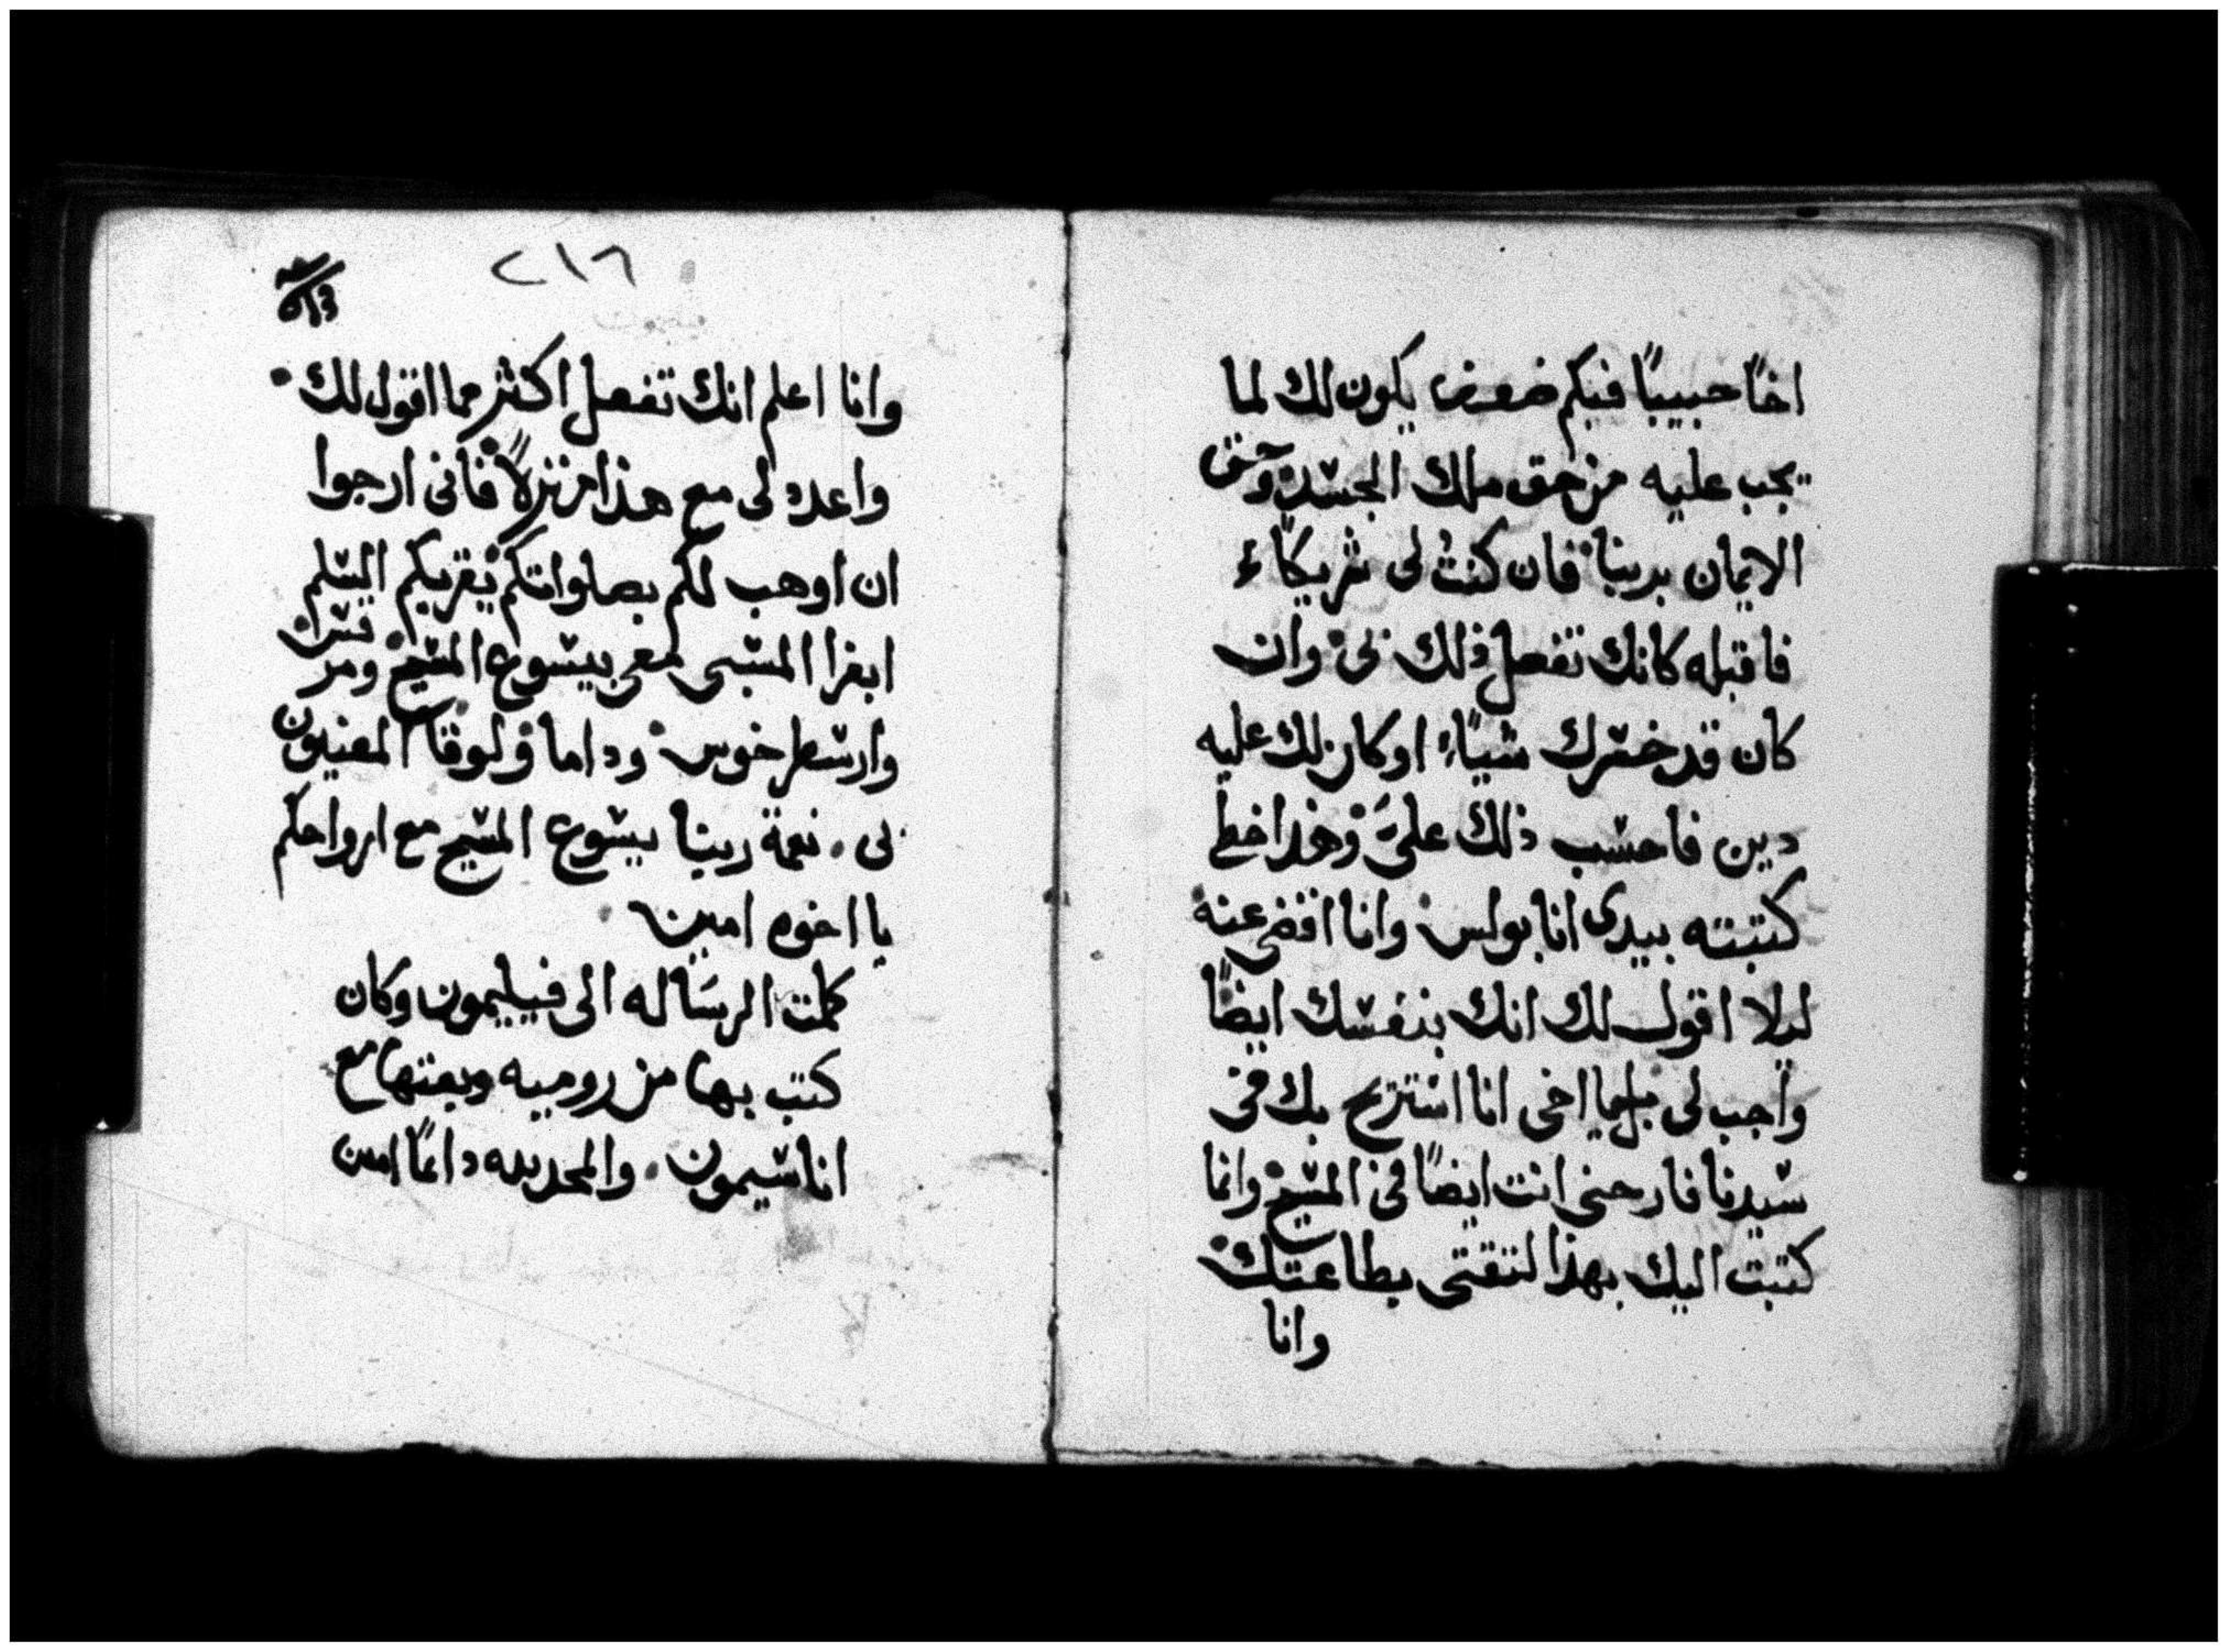 اخًا حبيبًا فبكم يكون لك لما
يجب عليه من حق ملك الجسد وحق
الايمان بربنا فان كنتُ لى شريكًاء
فاقبله كانك تفعل ذلك بى وان
كان قد خسرك شياًء او كان لك عليه
دين فاحسب ذلك علىَّ وهذا خطى
كتبته بيدى انا بولس وانا اقضى عنه
ليلا اقول لك انك بنفسك ايضًا
واجب لى يا اخى انا استريح بك فى
سيدنا فارحنى انت ايضًا فى المسيح وانما
كتبت اليك بهذا لثقتى بطاعتك
وانا
٢١٦
وانا اعلم انك تفعل اكثر مما اقول لك
واعدد لى مع هذا منزلاً فانى ارجوا
ان اوهب لكم بصلواتكم يقريكم السلم
ابفرا المسبى معى بيسوع المسيح ومرقس
وارسطرخوس وداما ولوقا المعنيون
بى . نعمة ربنا يسوع المسيح مع ارواحكم
يا اخوه امين
كملت الرساله الى فيليمون وكان
كتب بها من روميه وبعثها مع
اناسيمون . والمجد لله دائمًا امين